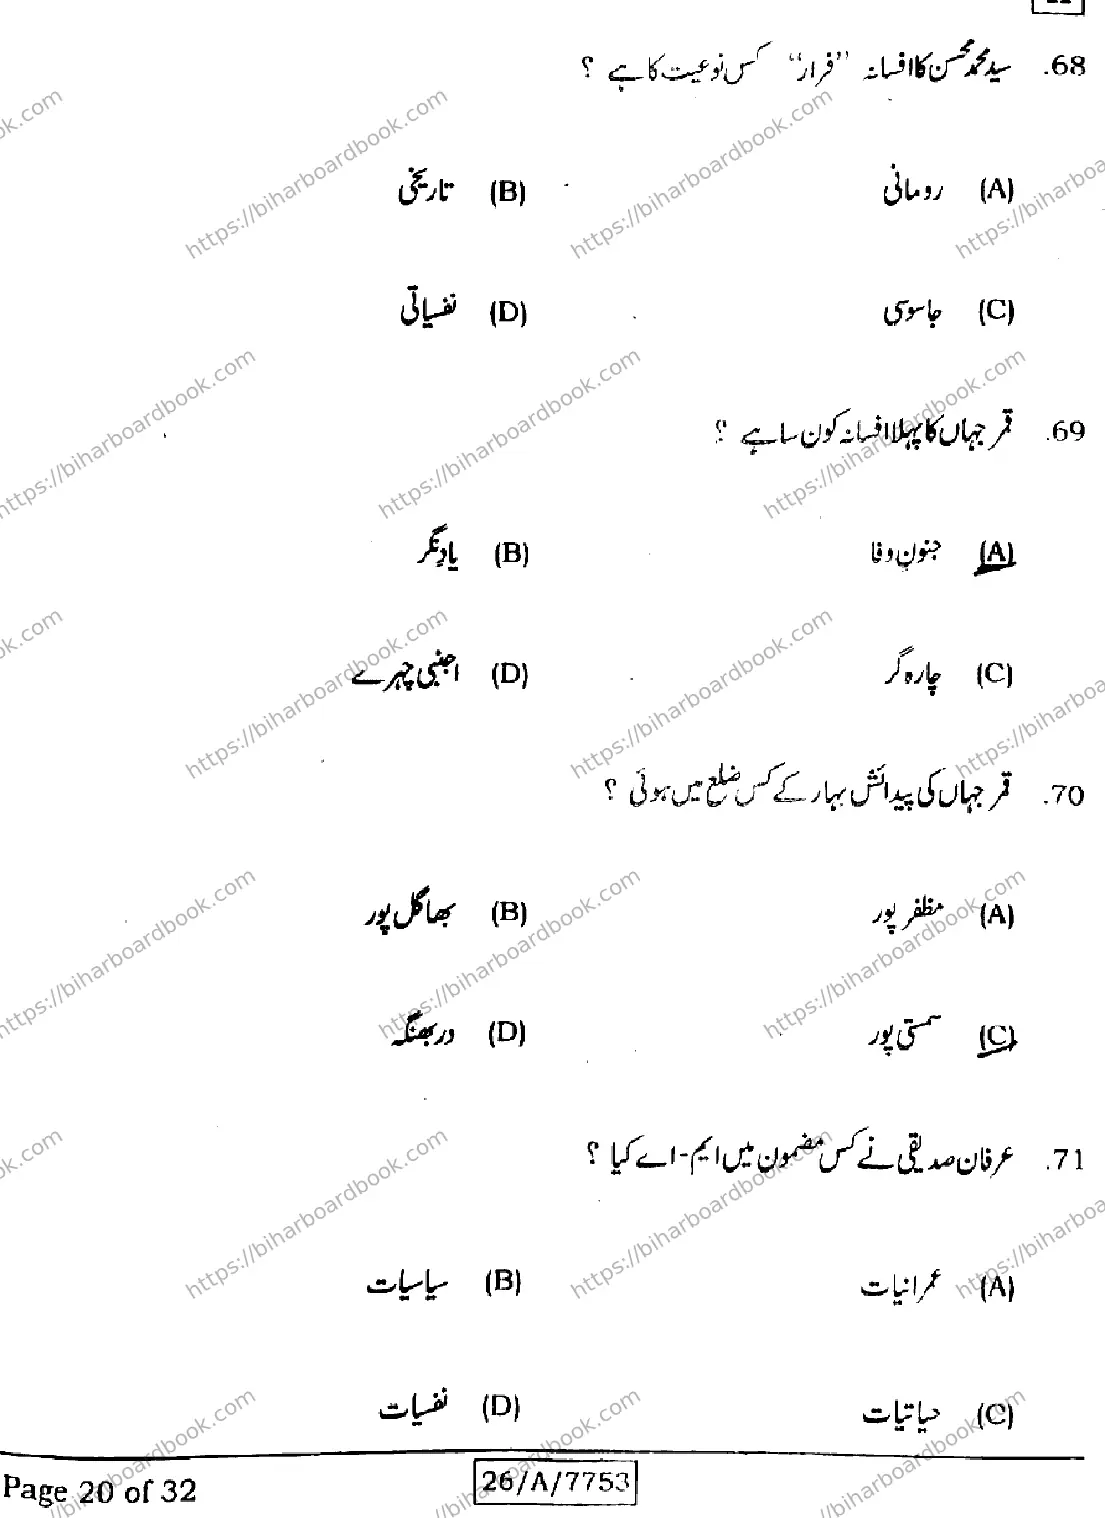 68. سید محمد محسن کا افسانہ ”فرار“ کس نوعیت کا ہے ؟
(A) رومانی (B) تاریخی
(C) جاسوسی (D) نفسیاتی
69. قمر جہاں کا پہلا افسانہ کون سا ہے ؟
(A) جنونِ وفا (B) یادِنگر
(C) چارہ گر (D) اجنبی چہرے
70. قمر جہاں کی پیدائش بہار کے کس ضلع میں ہوئی ؟
(A) مظفر پور (B) بھاگل پور
(C) سمستی پور (D) دربھنگہ
71. عرفان صدیقی نے کس مضمون میں ایم-اے کیا ؟
(A) عمرانیات (B) سیاسیات
(C) حیاتیات (D) نفسیات
Page 20 of 32 26/A/7753
https://biharboardbook.com